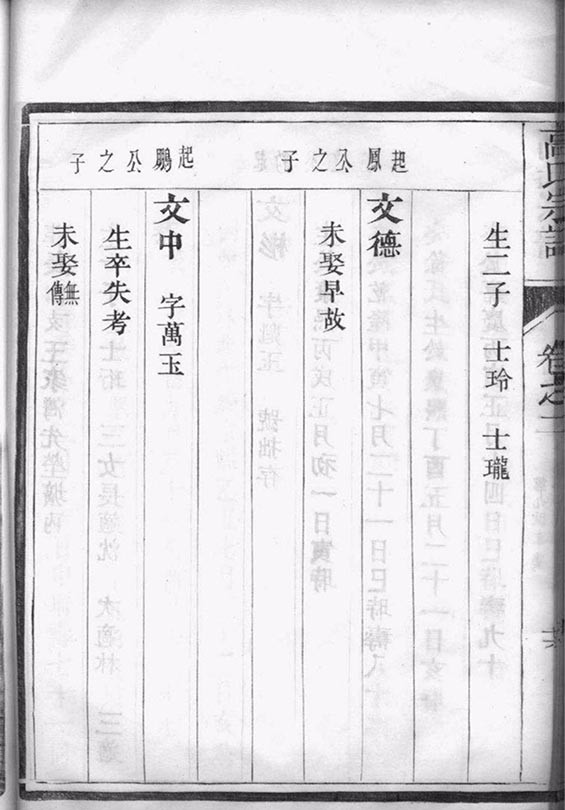 高氏宗譜
卷之二
生二子 士玲 士瓏
起鳳公之子
文德
未娶早故
起鵬公之子
文中 字萬玉
生卒失考
未娶無傳